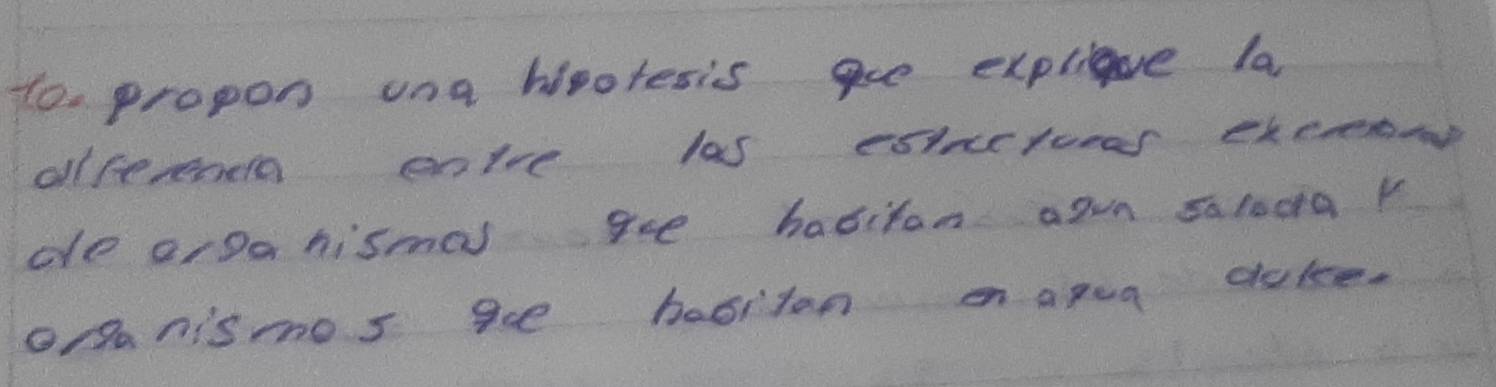 10. propon una hipotesis que explique la
diferencia entre las estructuras excretoras
de organismos que habitan agua salada y
organismos que habitan en agua dulce.